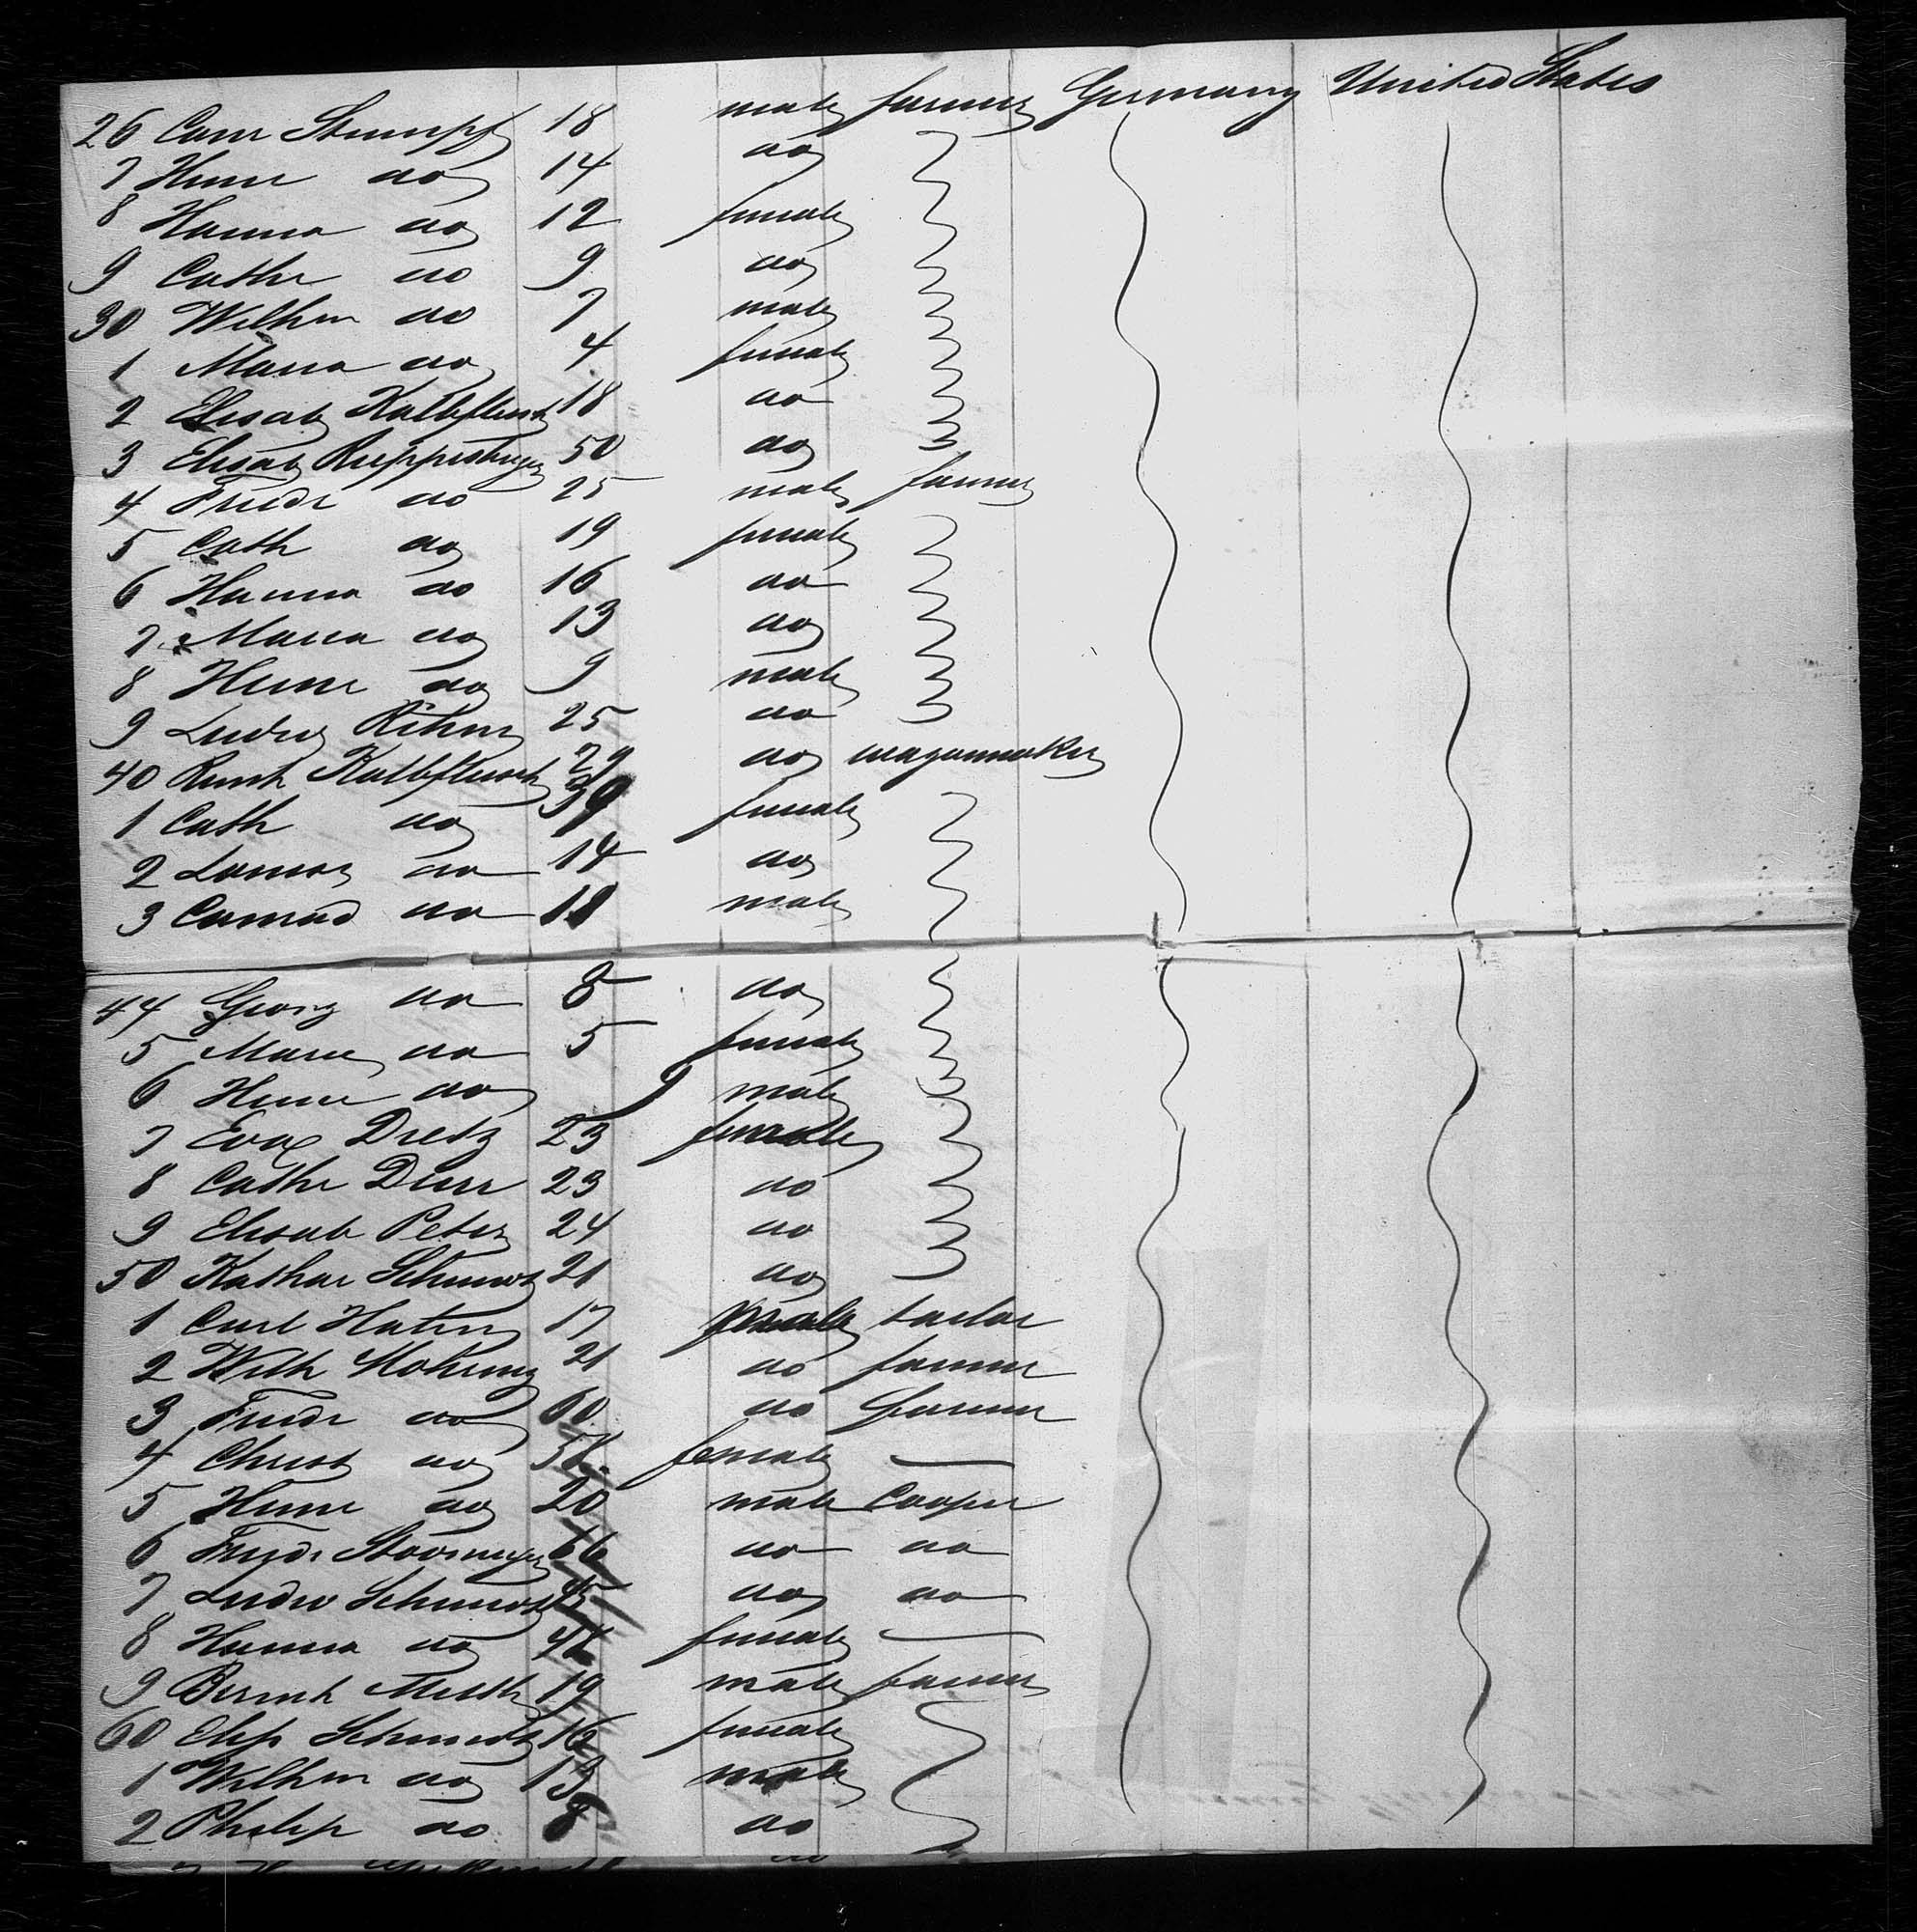 26 Conr Stumpf 18 male farmer Germany United States
7 Henr do 14 do
8 Hanna do 12 female
9 Cathr do 9 do
30 Wilhm do 7 male
1 Maria do 4 female
2 Elisab Kalbfleisch 18 do
3 Elisab 50 do
4 Friedr do 25 male farmer
5 Cath do 19 female
6 Hanna do 16 do
7 Maria do 13 do
8 Henr do 9 male
9 Ludwg 25 do
40 Kalbfleisch 29 do wagonmaker
1 Cath do 39 female
2 do 14 do
3 Conrad do 11 male
44 Georg do 8 do
5 Marie do 5 female
6 Henr do 9 male
7 Eva Dietz 23 female
8 Cathr Durr 23 do
9 Elisab Peter 24 do
50 Kathar Schmidt 21 do
1 Carl 17 male tailor
2 Wilh Mohring 21 do farmer
3 Friedr do 60 do farmer
4 Christ do 58 female —
5 Henr do 20 male Cooper
6 Friedr 66 do do
7 Ludw Schmidt 45 do do
8 Hanna do 48 female —
9 Bernh 19 male farmer
60 Elis Schmidt 16 female
1 Wilhm do 13 male
2 Philip do 8 do